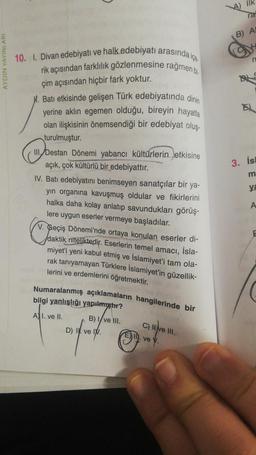 AYDIN YAYINLARI
10. I. Divan edebiyatı ve halk edebiyatı arasında içe-
rik açısından farklılık gözlenmesine rağmen bi-
çim açısından hiçbir fark yoktur.
II. Batı etkisinde gelişen Türk edebiyatında dinin
yerine aklın egemen olduğu, bireyin hayatla
olan ilişkisinin önemsendiği bir edebiyat oluş-
turulmuştur.
III. Destan Dönemi yabancı kültürlerin etkisine
açık, çok kültürlü bir edebiyattır.
IV. Batı edebiyatını benimseyen sanatçılar bir ya-
yın organına kavuşmuş oldular ve fikirlerini
halka daha kolay anlatıp savundukları görüş-
lere uygun eserler vermeye başladılar.
V. Geçiş Dönemi'nde ortaya konulan eserler di-
daktik niteliktedir. Eserlerin temel amacı, İsla-
miyet'i yeni kabul etmiş ve İslamiyet'i tam ola-
rak tanıyamayan Türklere İslamiyet'in güzellik-
lerini ve erdemlerini öğretmektir.
Numaralanmış açıklamaların hangilerinde bir
bilgi yanlışlığı yapılmıştır?
A) I. ve II.
B) I. ve III.
C) II. ve III.
D) II. ve IV.
E) III. ve V.
A) İlk
B) A
3. İsl
m
ya
A